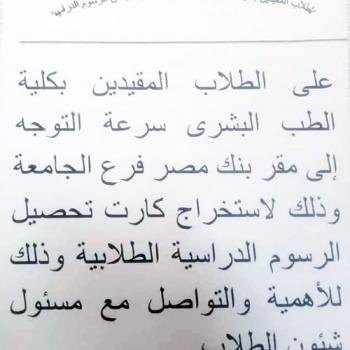 لطلاب المقيدين
الرسوم الدراسية
على الطلاب المقيدين بكلية
الطب البشرى سرعة التوجه
إلى مقر بنك مصر فرع الجامعة
وذلك لاستخراج كارت تحصيل
الرسوم الدراسية الطلابية وذلك
للأهمية والتواصل مع مسئول
شئون الطلاب